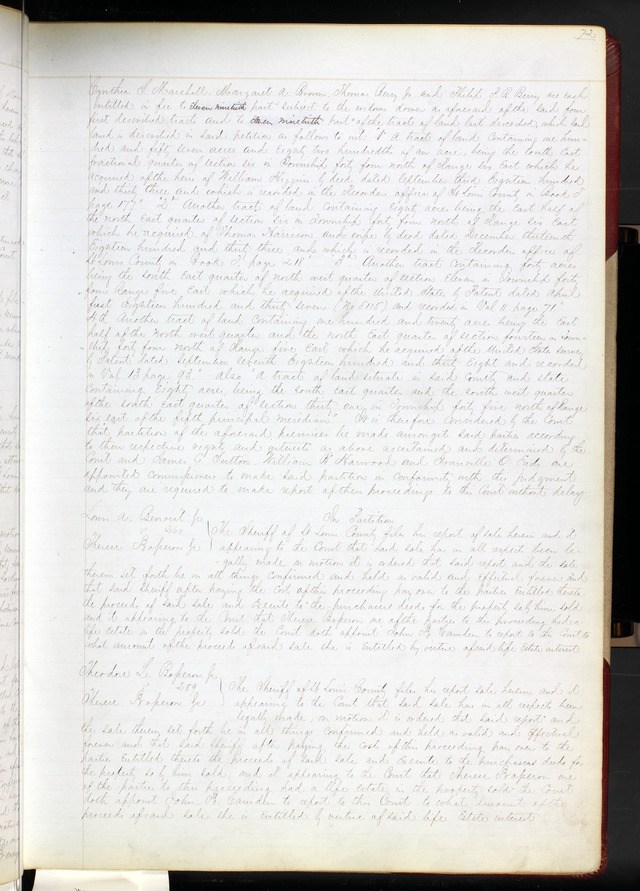 72
Cynthia L Marshall Margaret A Brown Thomas Berry Jr and Philip E R Berry are each
entitled in fee to eleven ninetieth part subject to the widows dower as aforesaid of the said four
first described tracts and to ninetieth part of the tract of land last described which said
land is described in said petition as follows to wit 1st A tract of land Containing one hun-
dred and fifty seven acres and Eighty two hundredths of an acre being the South East
fractional quarter of section six in Township forty four north of Range six East which he
acquired of the heirs of William by deed dated September third Eighteen hundred
and thirty three and which is recorded in the Recorders office of St Louis County in Book T
page 177 2d Another tract of land Containing Eight acres being the East half of
the north East quarter of section six in Township forty four north of Range six East
which he acquired of Thomas Harrison and wife by deed dated December thirteenth
Eighteen hundred and thirty three and which is recorded in the Recorders office of
St Louis County in Book T page 218 3d Another tract Containing forty acres
being the South East quarter of north west quarter of section Eleven in Township forty
four Range five East which he acquired of the United States by Patent dated April
first Eighteen hundred and thirty seven (No 5115) and recorded in Vol 11 page 71
4th Another tract of land Containing one hundred and twenty acres being the East
half of the north west quarter and the north East quarter of section fourteen in Town-
ship forty four north of Range five East which he acquired of the United States
by Patent dated September seventh Eighteen hundred and thirty Eight and recorded
in Vol 13 page 93 Also A tract of land situate in said County and state
Containing Eight acres being the south east quarter and the south west quarter
of the south East quarter of section thirty one in Township forty five north of range
six east of the fifth principal meridian It is therefore Considered by the Court
that partition of the aforesaid premises be made amongst said parties according
to their respective rights and interests as above ascertained and determined by the
Court and James C Sutton William H Harwood and Granville O are
appointed Commissioners to make said partition in Conformity with this judgment
and they are required to make report of their proceedings to this Court without delay
Louis A Benoist Jr In Partition
The Sheriff of St Louis County files his report of sale herein and it
Therese Jr appearing to the Court that said sale has in all respect been le-
gally made on motion it is ordered that said report and the sale
therein set forth be in all things Confirmed and held as valid and effectual forever and
that said Sheriff after paying the Cost of this proceeding pay over to the parties Entitled thereto
the proceeds of said sale and Execute to the purchasers deeds for the property so by him sold
and it appearing to the Court that Therese one of the parties to this proceeding had a
life estate in the property sold the Court doth appoint John B Camden to report to this Court to
what amount of the proceeds of said sale she is Entitled by virtue of said life Estate interest
Theodore L Jr
259 The Sheriff of St Louis County files his report sale herein and it
Therese Jr appearing to the Court that said sale has in all respects been
legally made on motion it is ordered that said report and
the sale therein set forth be in all things Confirmed and held as valid and Effectual
forever and that said Sheriff after paying the Costs of this proceeding pay over to the
parties Entitled thereto the proceeds of said sale and Execute to the purchasers deeds for
the property so by him sold and it appearing to the Court that Therese one
of the parties to this proceeding had a life estate in the property sold the Court
doth appoint John B Camden to report to this Court to what amount of the
proceeds of said sale she is entitled by virtue of said life Estate interest